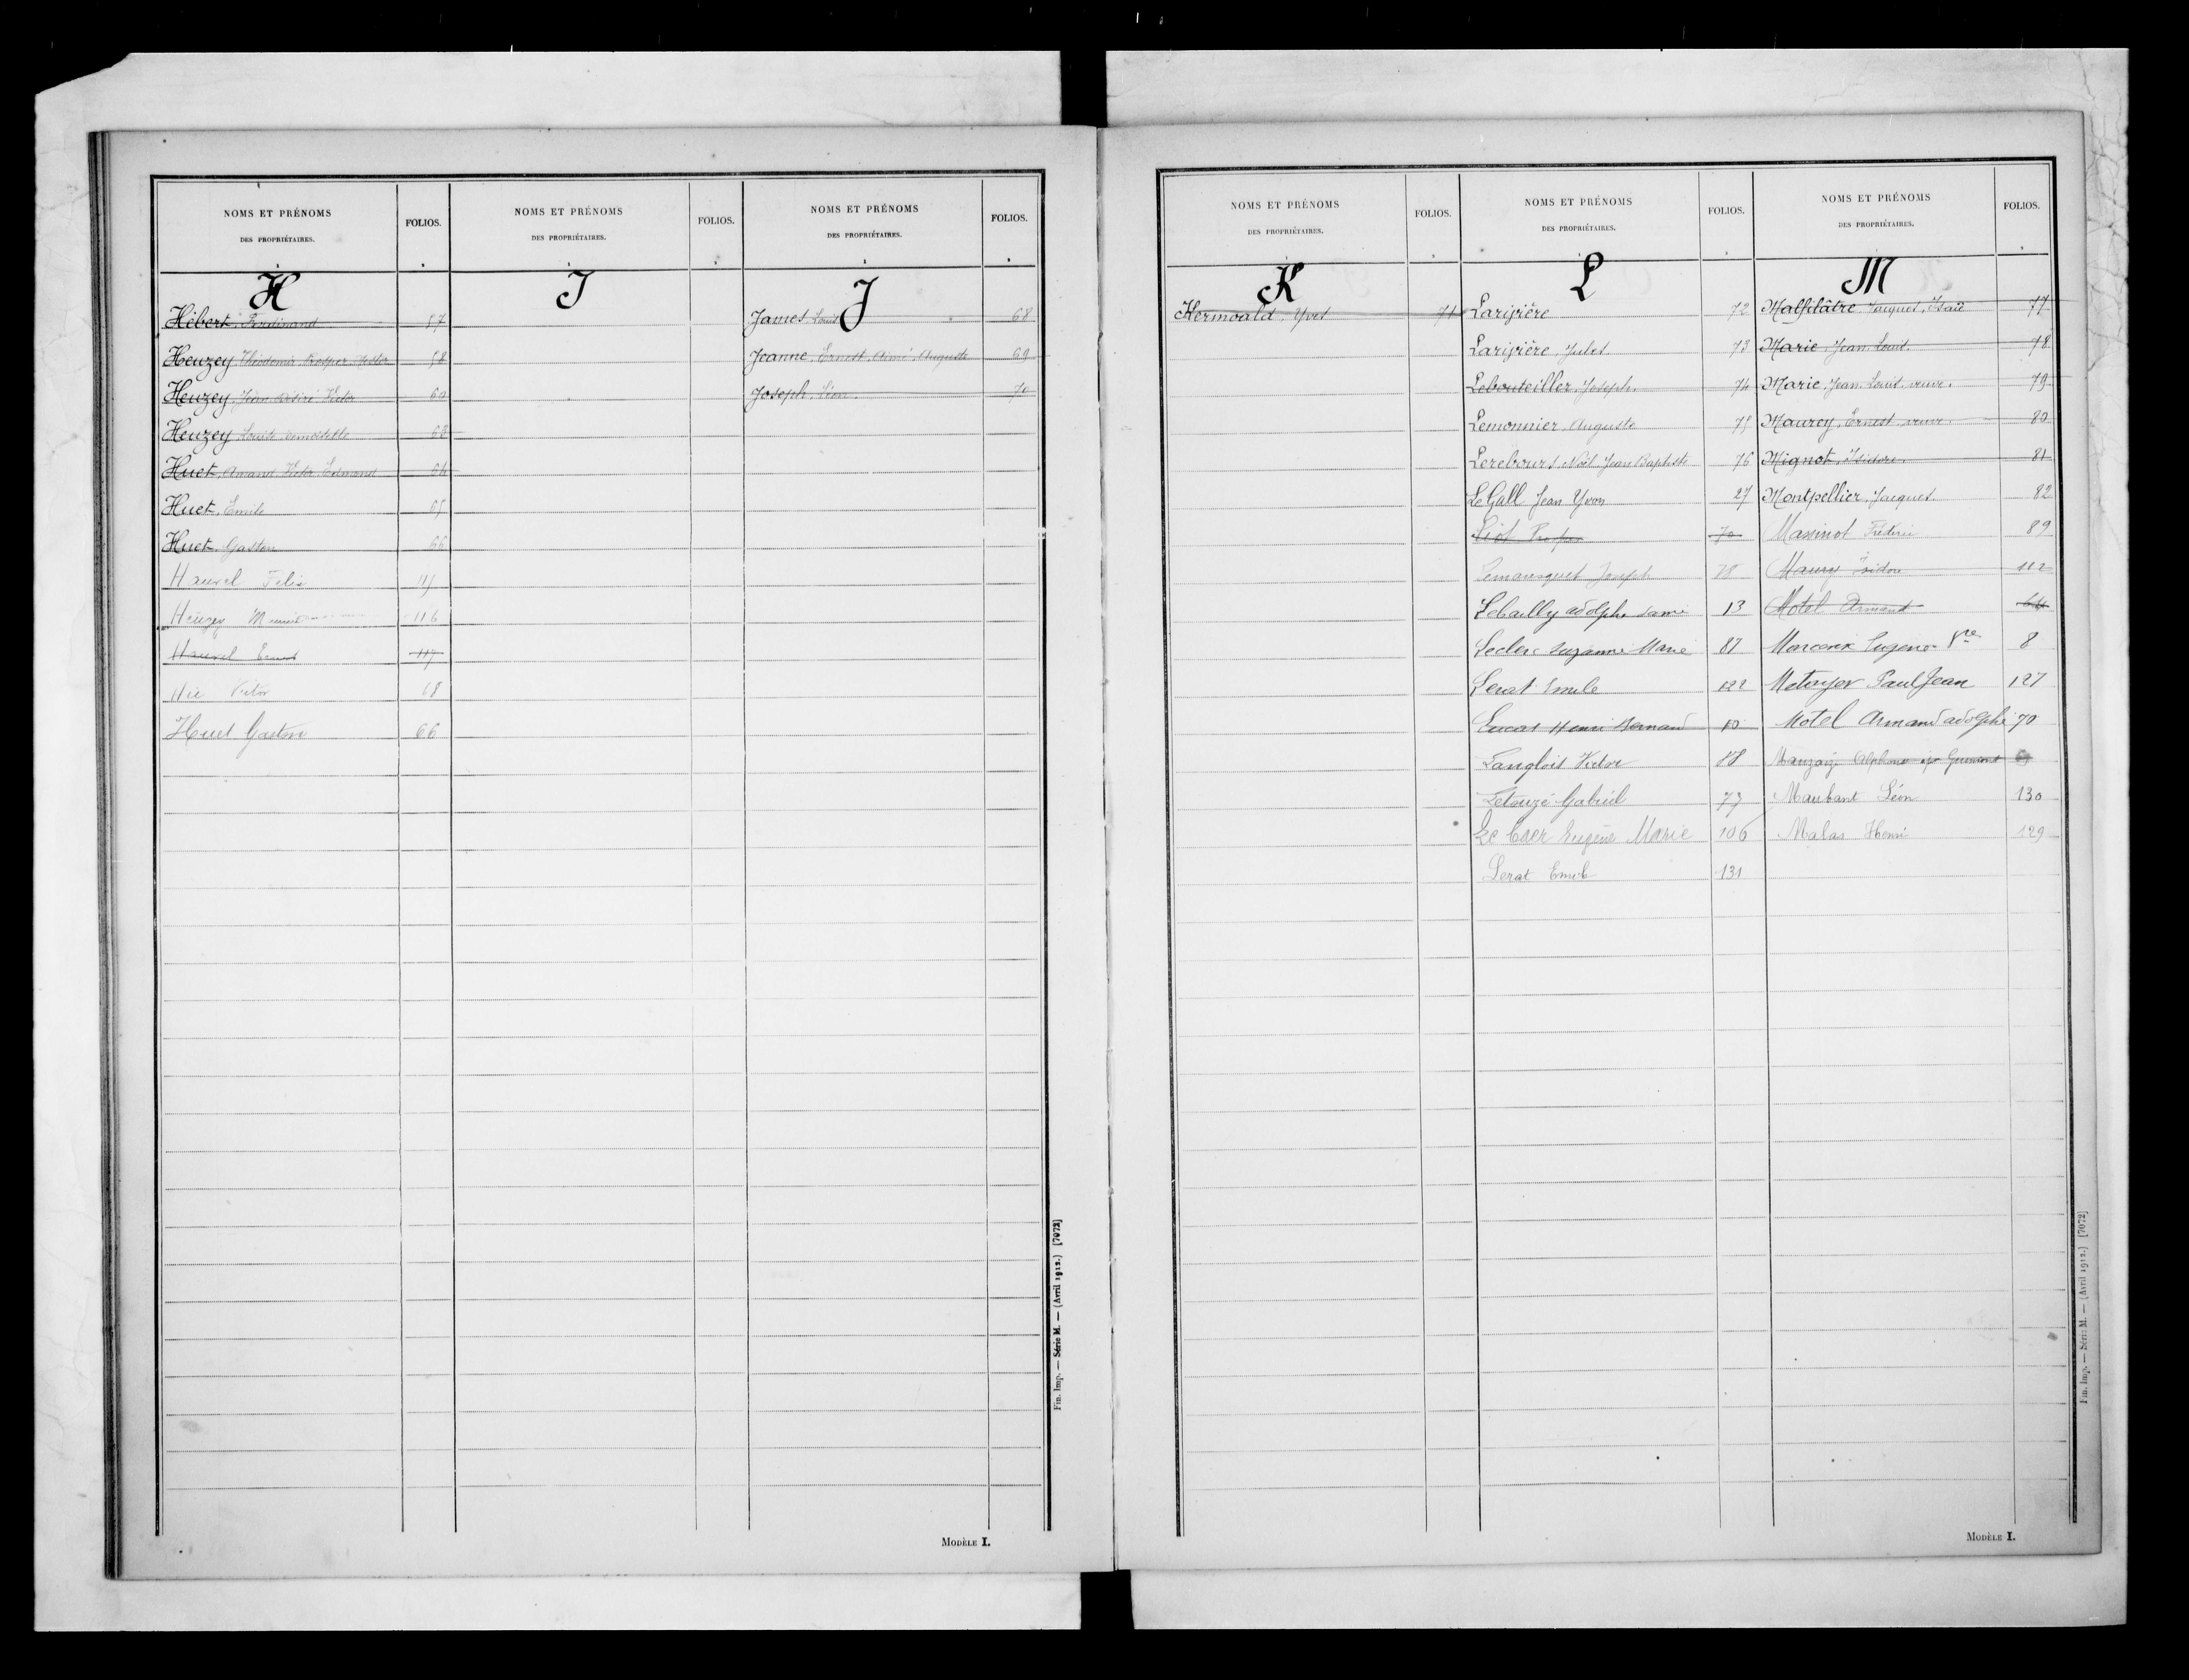 NOMS ET PRÉNOMS
DES PROPRIÉTAIRES.
FOLIOS.
H
Hébert, Ferdinand 57
Heuzey, Théodomir Prosper Victor 58
Heuzey, Jean Désiré Victor 60
Heuzey Louise demoiselle 63
Huet, Amand Victor Edmond 64
Huet, Emile 65
Huet, Gaston 66
Haurel Felix 115
Heuzey 116
Haurel Ernest 117
Hie Victor 68
Huet Gaston 66
NOMS ET PRÉNOMS
DES PROPRIÉTAIRES.
FOLIOS.
I
NOMS ET PRÉNOMS
DES PROPRIÉTAIRES.
FOLIOS.
J
James, Louis 68
Jeanne, Ernest, Aimé, Auguste 69
Joseph, Léon 70
Fin. Imp. — Série M. — (Avril 1912.) [7072]
MODÈLE I.
NOMS ET PRÉNOMS
DES PROPRIÉTAIRES.
FOLIOS.
K
Kermoald, Yves 71
NOMS ET PRÉNOMS
DES PROPRIÉTAIRES.
FOLIOS.
L
Larivière 72
Larivière, Jules 73
Lebouteiller, Joseph 74
Lemonnier, Auguste 75
Lerebours, Noël Jean Baptiste 76
Le Gall Jean Yvon 27
Liot Prosper 70
Lemarsquet Joseph 78
Lebailly adolphe dame 13
Leclerc Suzanne Marie 87
Lerat Emile 122
Lucas Henri Bernard 10
Langlois Victor 88
Letouzé Gabriel 73
Le Caer Eugène Marie 106
Lerat Emile 131
NOMS ET PRÉNOMS
DES PROPRIÉTAIRES.
FOLIOS.
M
Malfilâtre, Jacques, Isaïe 77
Marie, Jean Louis 78
Marie, Jean Louis, veuve 79
Maurey, Ernest, veuve 80
Mignot, Isidore 81
Montpellier, Jacques 82
Massinot Frédéric 89
Maury Isidore 112
Motel Armand
Marcerix Eugène Vve 8
Metayer Paul Jean 127
Motel Armand adolphe 70
Alphonse
Maubant Léon 130
Malas Henri 129
Fin. Imp. — Série M. — (Avril 1912.) [7072]
MODÈLE I.